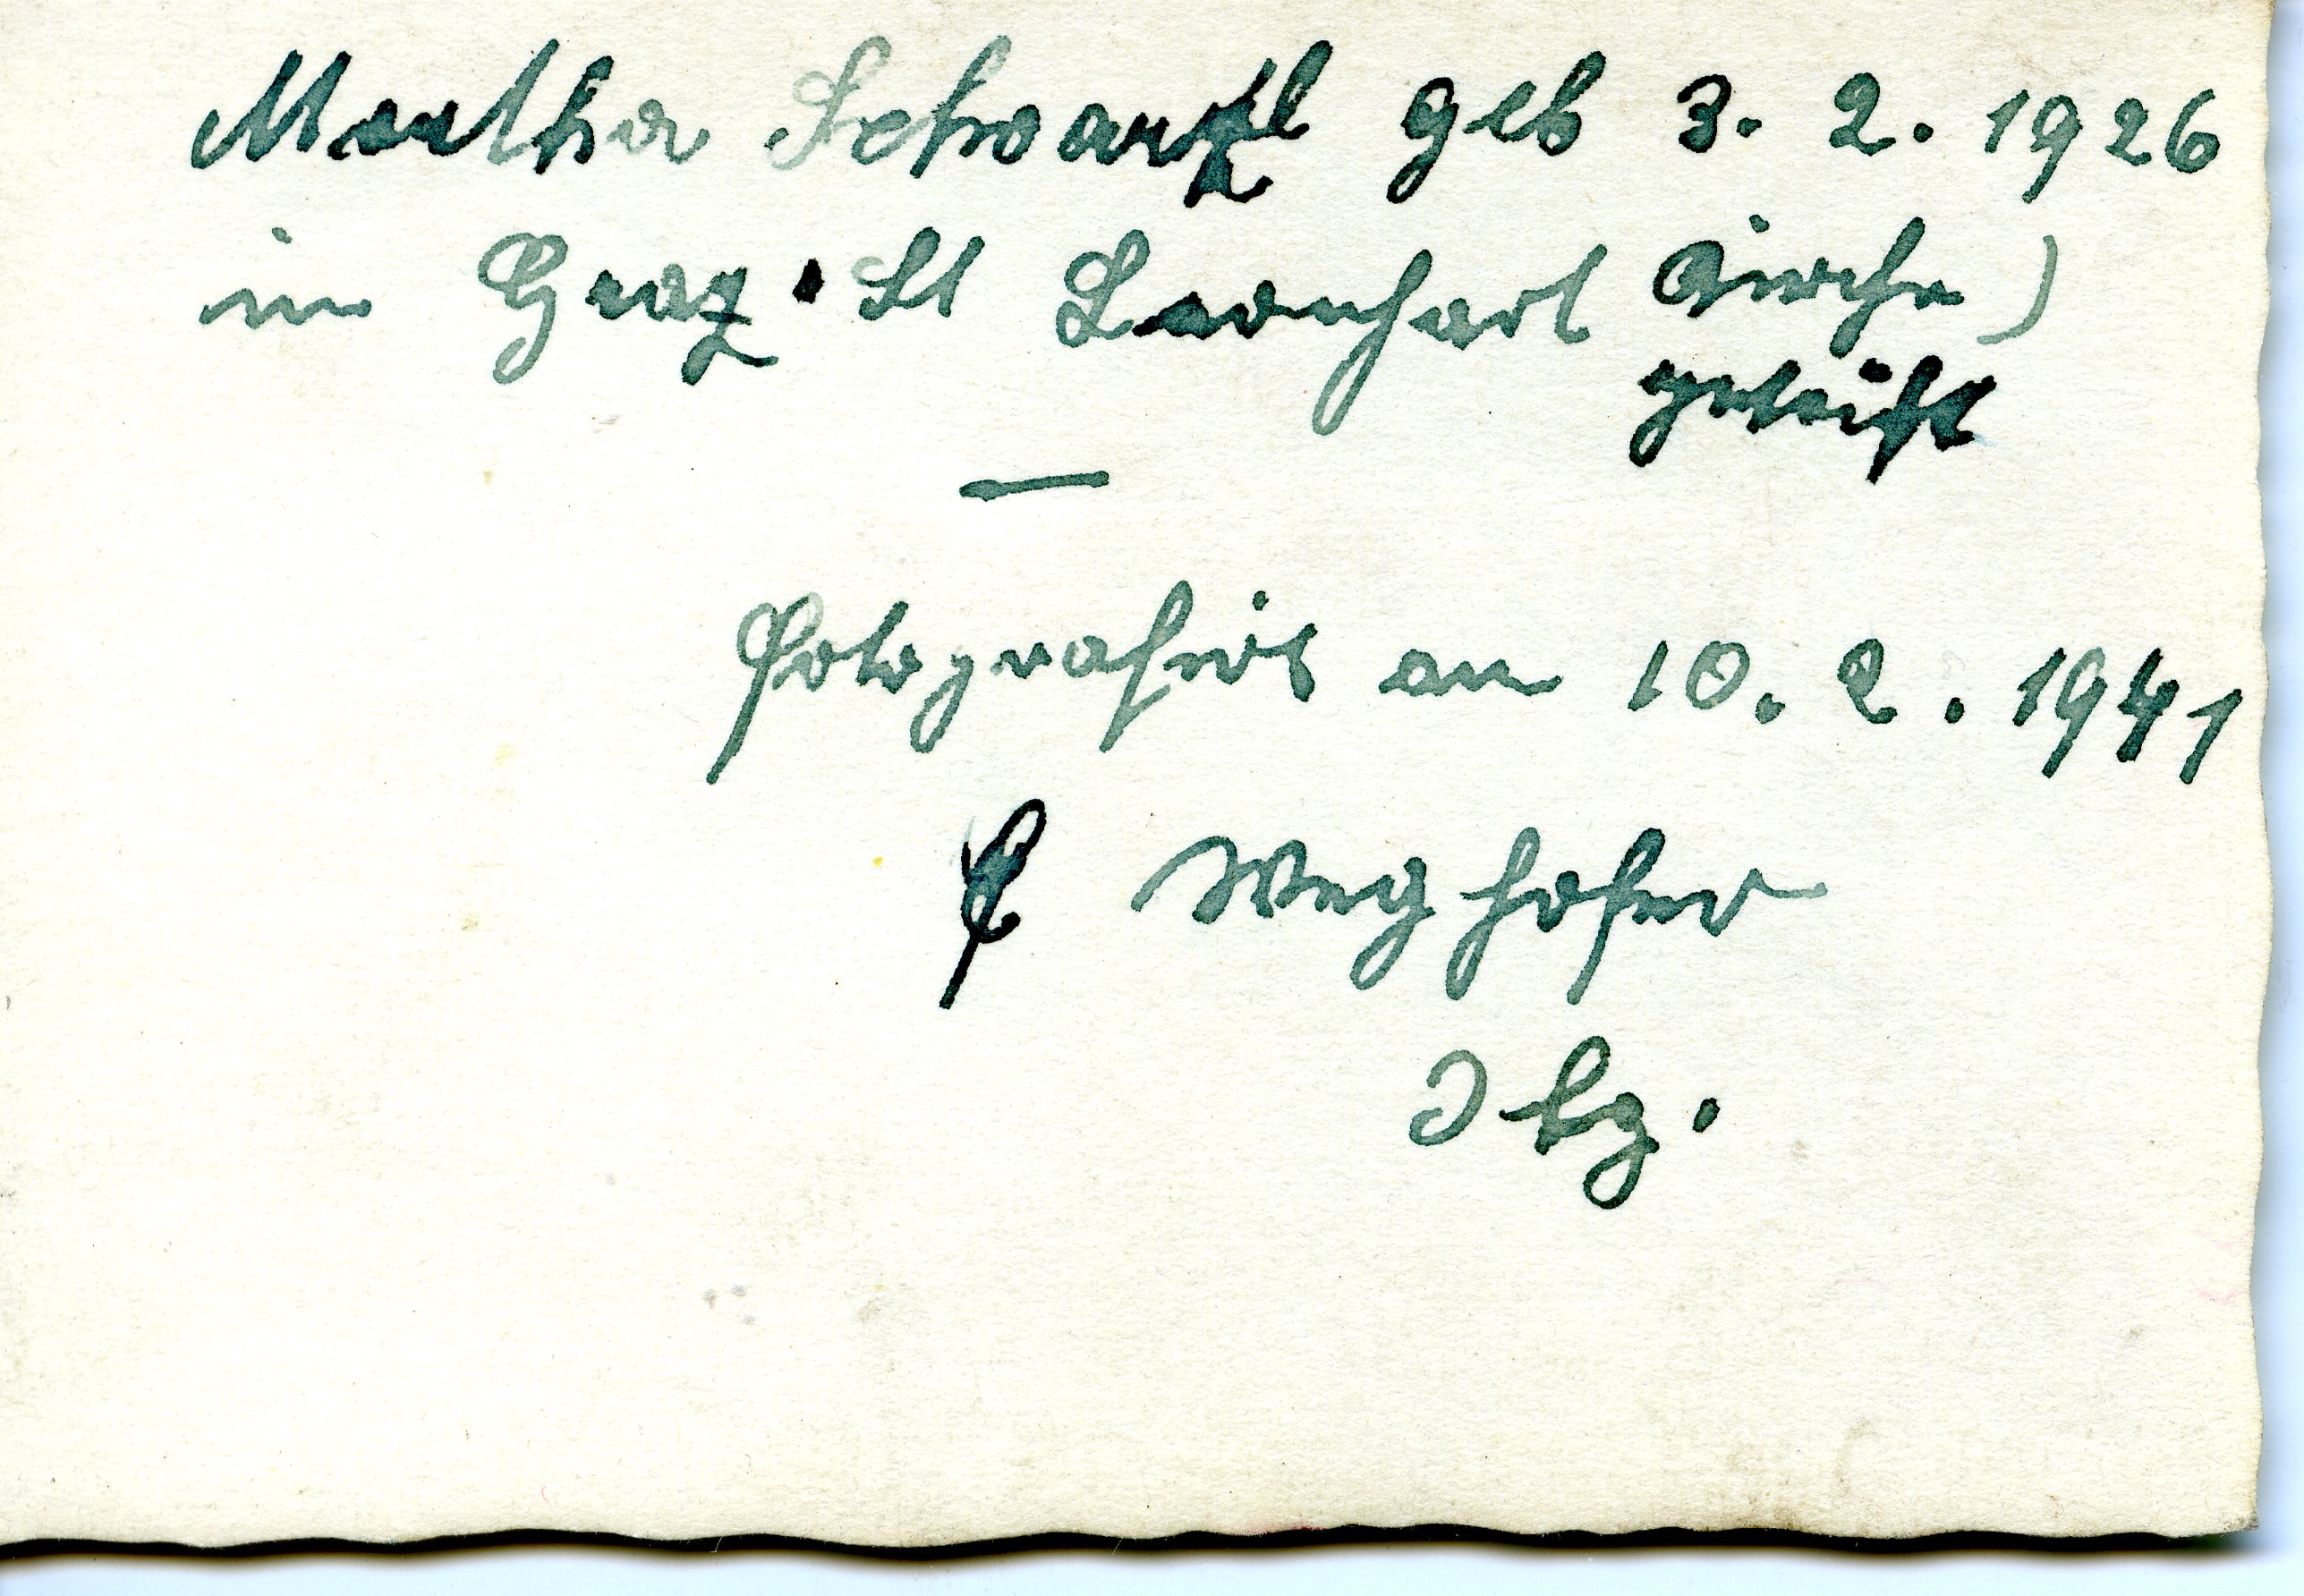 Martha Schwarzl geb 3. 2. 1926
in Graz. St Leonhart Kirche)
getauft
—
Fotografirt am 10. 2. 1941
Weghofer